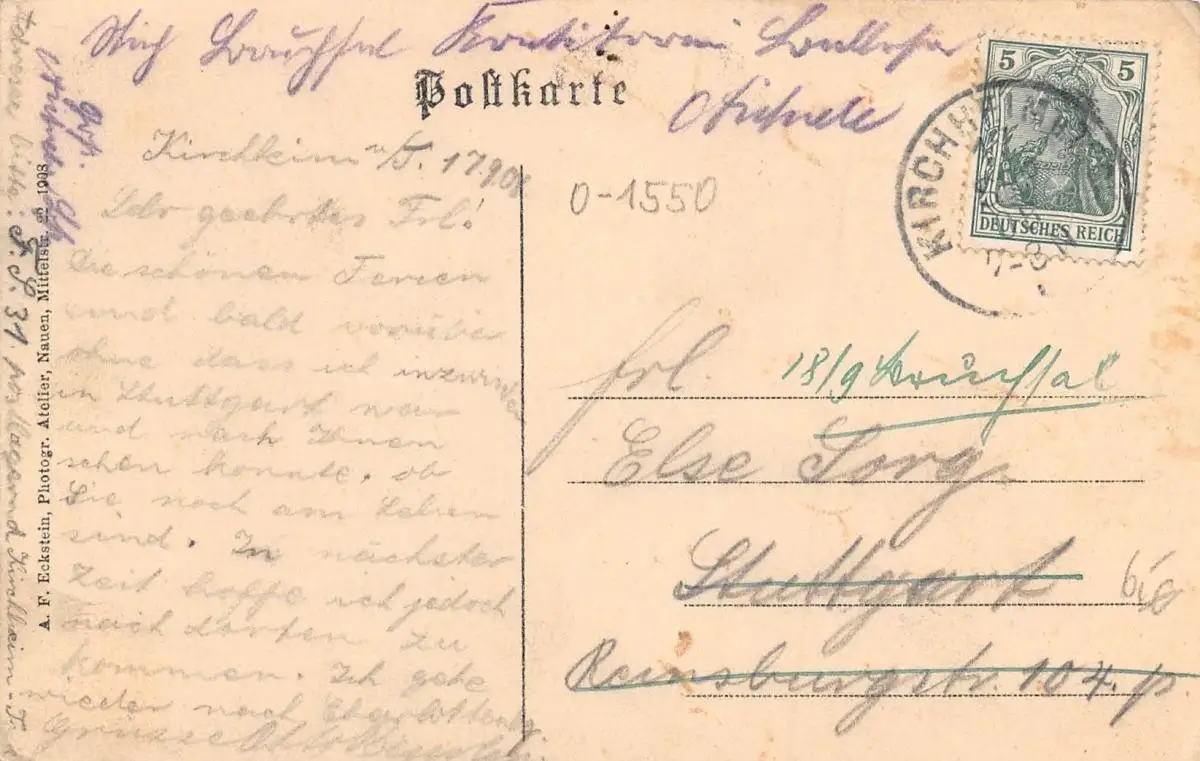 Postkarte
Kirchheim u/T. 17.9.08
Sehr geehrtes Frl!
Die schönen Ferien
sind bald vorüber
ohne dass ich inzwischen
in Stuttgart war
und nach Ihnen
sehen konnte, ob
Sie noch am Leben
sind. In nächster
Zeit hoffe ich jedoch
nach dorten zu
kommen. Ich gehe
wieder nach Charlottenbg.
Grüsse Otto
Adresse bitte: F. S. 31 postlagernd Kirchheim-T.
A. F. Eckstein, Photogr. Atelier, Nauen, Mittelstr. 1908
Bruchsal
0-1550
5 5
DEUTSCHES REICH
KIRCHHEIM
7-8 N
Frl.
18/9 Bruchsal
Else Sorg.
Stuttgart
Reinsburgstr. 104. p.